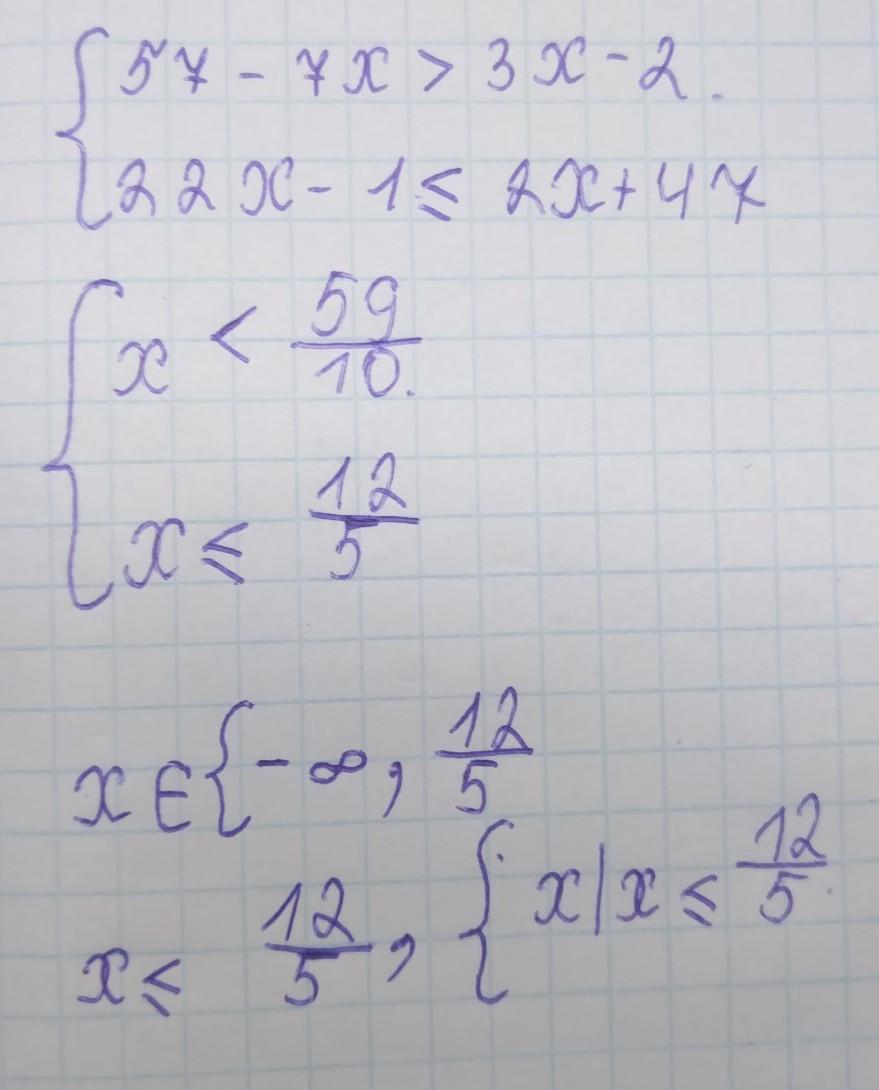 { 57 - 7x > 3x - 2.
{ 22x - 1 ≤ 2x + 47
{ x < 59/10.
{ x ≤ 12/5
x ∈ { - ∞, 12/5
x ≤ 12/5, { x | x ≤ 12/5.